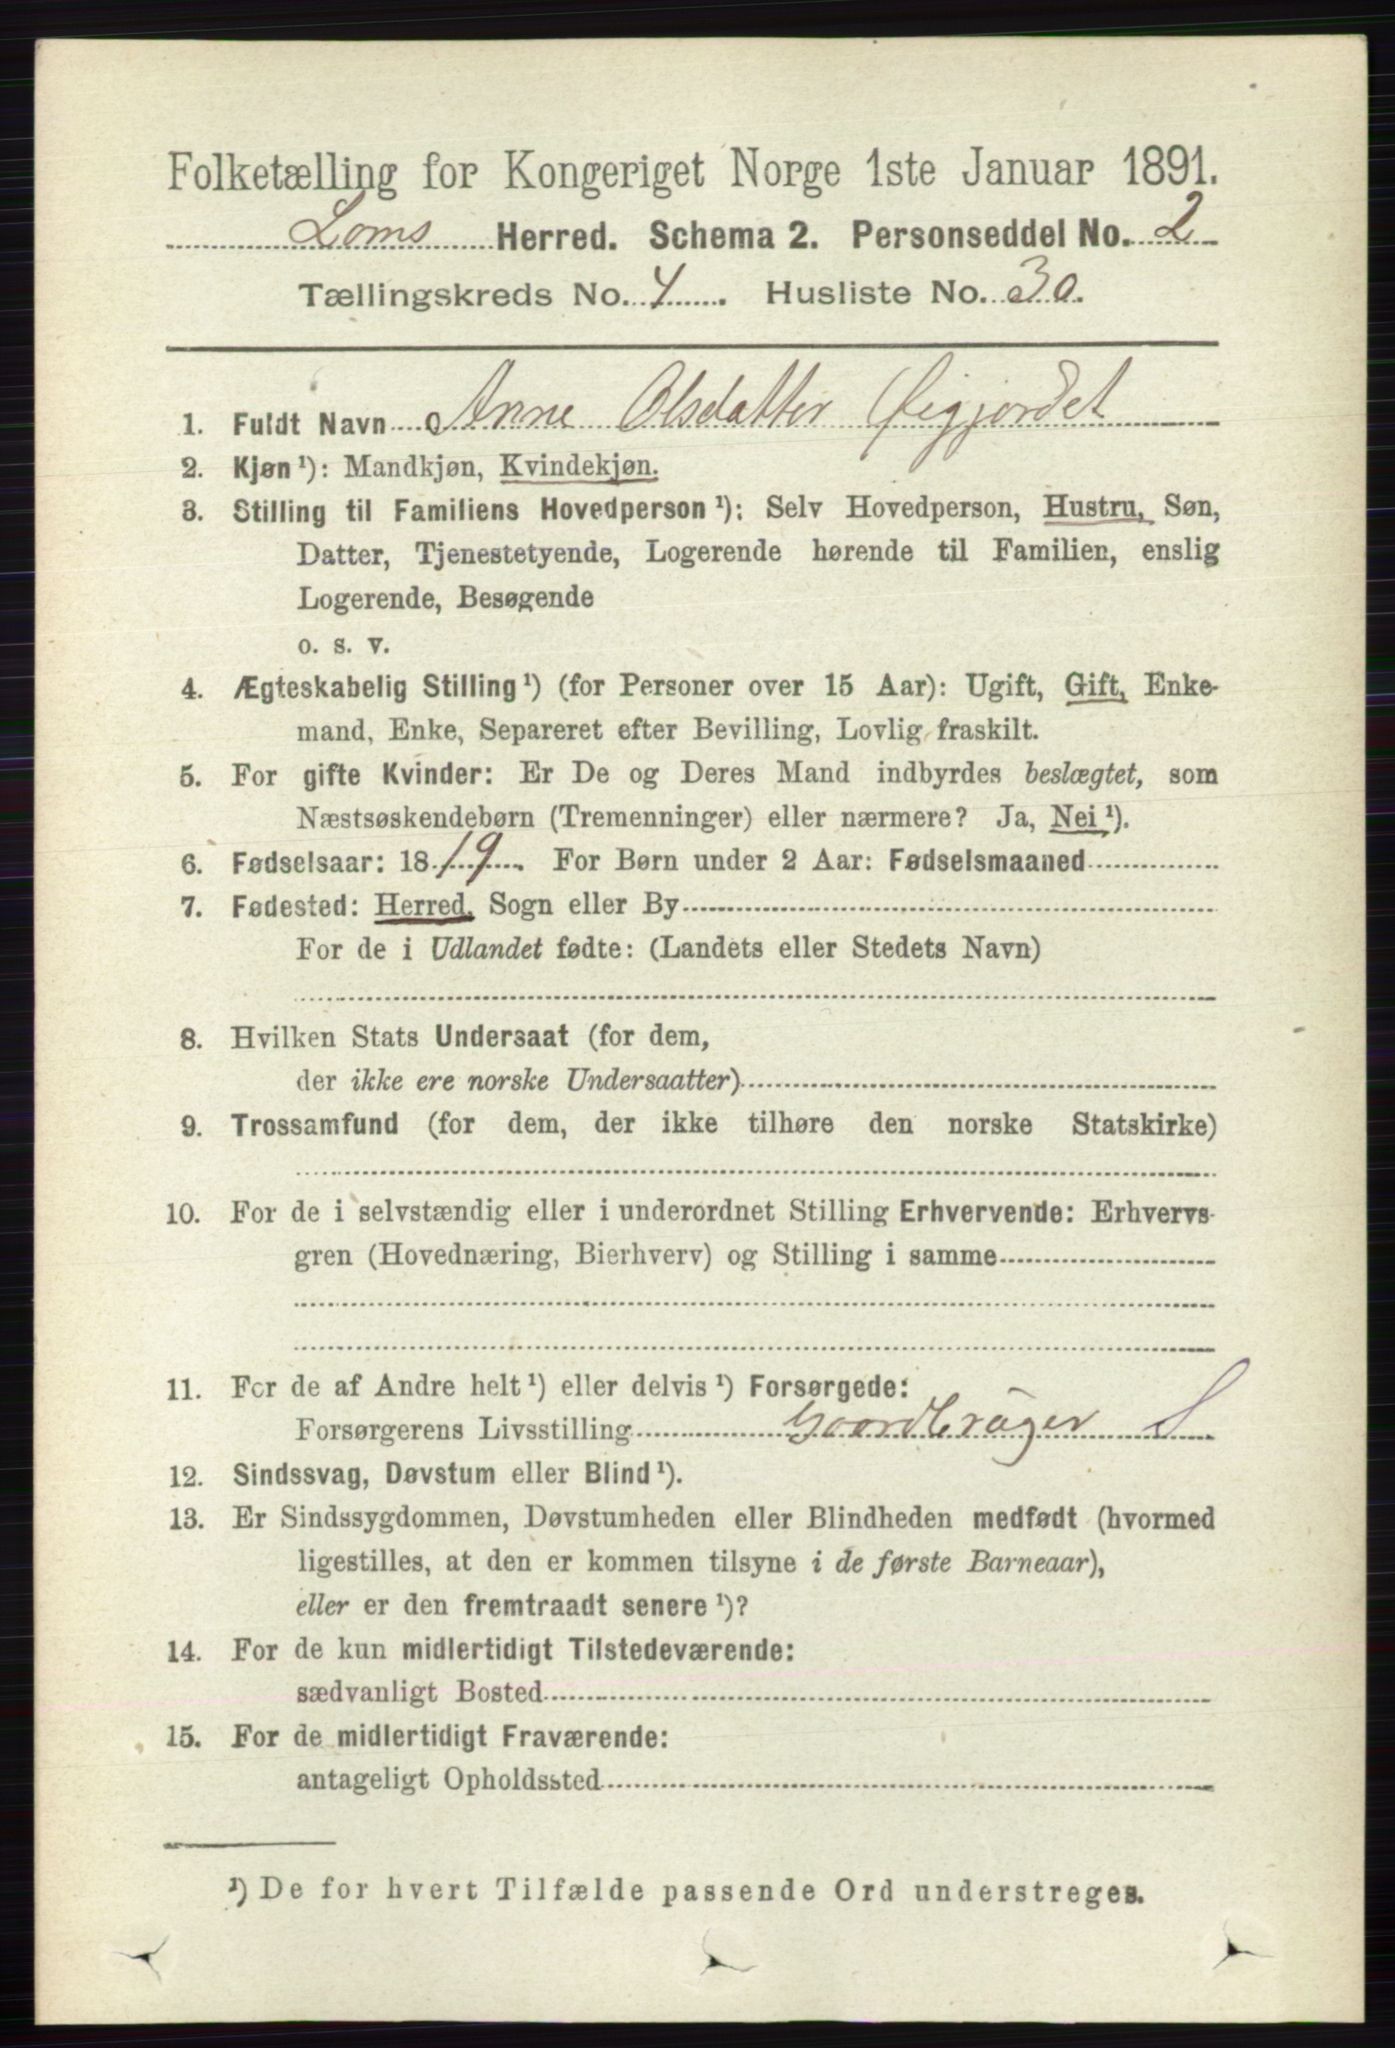 Folketælling for Kongeriget Norge 1ste Januar 1891.
Loms Herred. Schema 2. Personseddel No. 2
Tællingskreds No. 4. Husliste No. 30.
1. Fuldt Navn Anne Olsdatter Øigjordet
2. Kjøn ¹): Mandkjøn, Kvindekjøn.
3. Stilling til Familiens Hovedperson ¹): Selv Hovedperson, Hustru, Søn,
Datter, Tjenestetyende, Logerende hørende til Familien, enslig
Logerende, Besøgende
o. s. v.
4. Ægteskabelig Stilling ¹) (for Personer over 15 Aar): Ugift, Gift, Enke-
mand, Enke, Separeret efter Bevilling, Lovlig fraskilt.
5. For gifte Kvinder: Er De og Deres Mand indbyrdes beslægtet, som
Næstsøskendebørn (Tremenninger) eller nærmere? Ja, Nei ¹).
6. Fødselsaar: 1819. For Børn under 2 Aar: Fødselsmaaned
7. Fødested: Herred, Sogn eller By
For de i Udlandet fødte: (Landets eller Stedets Navn)
8. Hvilken Stats Undersaat (for dem,
der ikke ere norske Undersaatter)
9. Trossamfund (for dem, der ikke tilhøre den norske Statskirke)
10. For de i selvstændig eller i underordnet Stilling Erhvervende: Erhvervs-
gren (Hovednæring, Bierhverv) og Stilling i samme
11. For de af Andre helt ¹) eller delvis ¹) Forsørgede:
Forsørgerens Livsstilling Gaardbruger S
12. Sindssvag, Døvstum eller Blind ¹).
13. Er Sindssygdommen, Døvstumheden eller Blindheden medfødt (hvormed
ligestilles, at den er kommen tilsyne i de første Barneaar),
eller er den fremtraadt senere ¹)?
14. For de kun midlertidigt Tilstedeværende:
sædvanligt Bosted
15. For de midlertidigt Fraværende:
antageligt Opholdssted
¹) De for hvert Tilfælde passende Ord understreges.